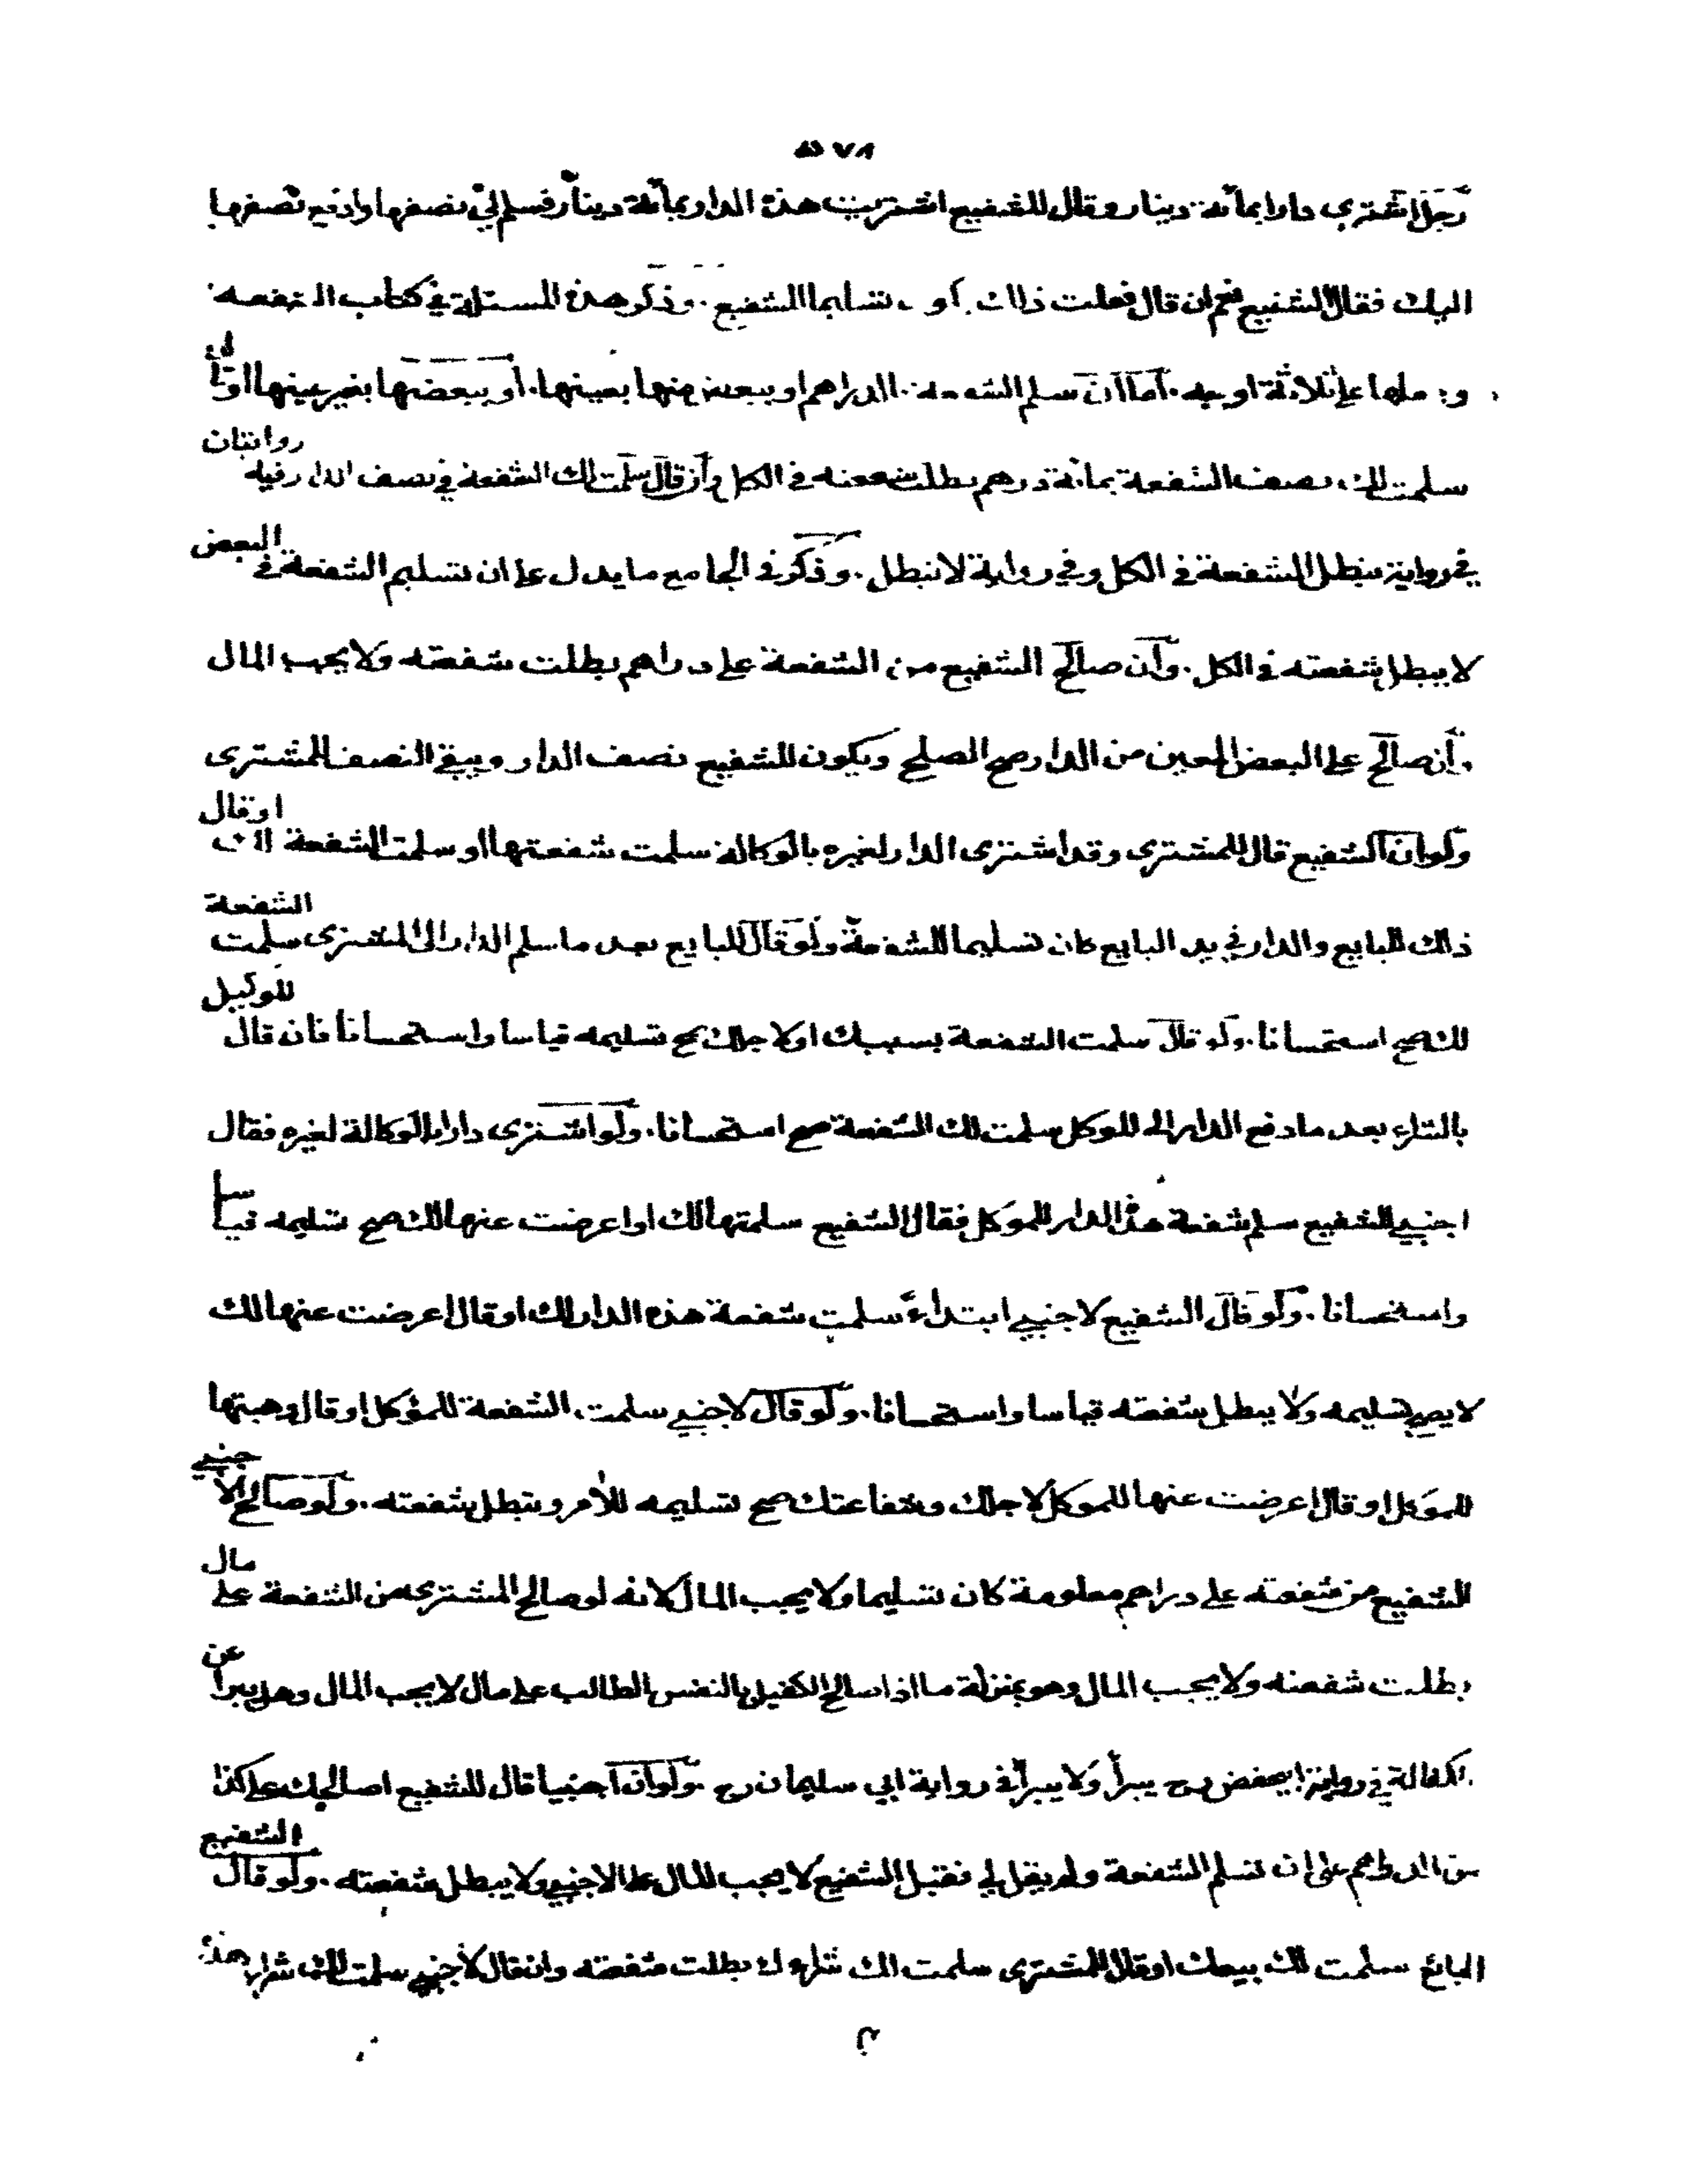 ٥٧٨
رجل اشترى دارا بمائة دينار وقال للشفيع اشتريت هذه الدار بمائة دينار فسلم الي نصفها وادفع نصفها
اليك فقال الشفيع نعم ان قال فعلت ذلك تسليما للشفيع . وذكر هذه المسئلة في كتاب الشفعه
على ثلاثة اوجه . اما ان سلم الدراهم او ببعض منها بعينها . او ببعضها بغير عينها
سلمت لك نصف الشفعة بمائة درهم بطلت شفعته في الكل وان قال سلمت لك الشفعة في نصف الدار ففيه روايتان
في رواية تبطل الشفعة في الكل وفي رواية لا تبطل . وذكر في الجامع ما يدل على ان تسليم الشفعة في البعض
لا يبطل شفعته في الكل . وان صالح الشفيع من الشفعة على دراهم بطلت شفعته ولا يجب المال
وان صالح على البعض المعين من الدار صح الصلح ويكون للشفيع نصف الدار ويبقى النصف للمشترى
ولو ان الشفيع قال للمشترى وقد اشترى الدار لغيره بالوكالة سلمت شفعتها او سلمت الشفعة لك او قال
ذلك للبايع والدار في يد البايع كان تسليما للشفعة ولو قال للبايع بعد ما سلم الدار الى المشترى سلمت الشفعة
لك صح استحسانا . ولو قال سلمت الشفعة بسببك او لاجلك صح تسليمه قياسا واستحسانا فان قال للوكيل
بالشراء بعد ما دفع الدار الى الموكل سلمت لك الشفعة صح استحسانا . ولو اشترى دارا بالوكالة لغيره فقال
اجنبي للشفيع سلم شفعة هذه الدار للموكل فقال الشفيع سلمتها لك او اعرضت عنها لك صح تسليمه قياسا
واستحسانا . ولو قال الشفيع لاجنبي ابتداء سلمت شفعة هذه الدار لك او قال اعرضت عنها لك
لا يصح تسليمه ولا يبطل شفعته قياسا واستحسانا . ولو قال لاجنبي سلمت الشفعة للموكل او قال وهبتها
للموكل او قال اعرضت عنها للموكل لاجلك وشفاعتك صح تسليمه للآمر وتبطل شفعته . ولو صالح الاجنبي
الشفيع من شفعته على دراهم معلومة كان تسليما ولا يجب المال لانه لو صالح المشترى من الشفعة على مال
بطلت شفعته ولا يجب المال وهو بمنزلة ما اذا صالح الكفيل بالنفس الطالب على مال لا يجب المال وهل يبرأ عن
الكفالة في رواية ابي حفص رح يبرأ ولا يبرأ في رواية ابي سليمان رح . ولو ان اجنبيا قال للشفيع اصالحك على كذا
من الدراهم على ان تسلم الشفعة ولم يقل لي فقبل الشفيع لا يجب المال على الاجنبي ولا يبطل شفعته . ولو قال الشفيع
البائع سلمت لك بيعك او قال للمشترى سلمت لك شراءك بطلت شفعته وان قال لاجنبي سلمت لك شراء هذه